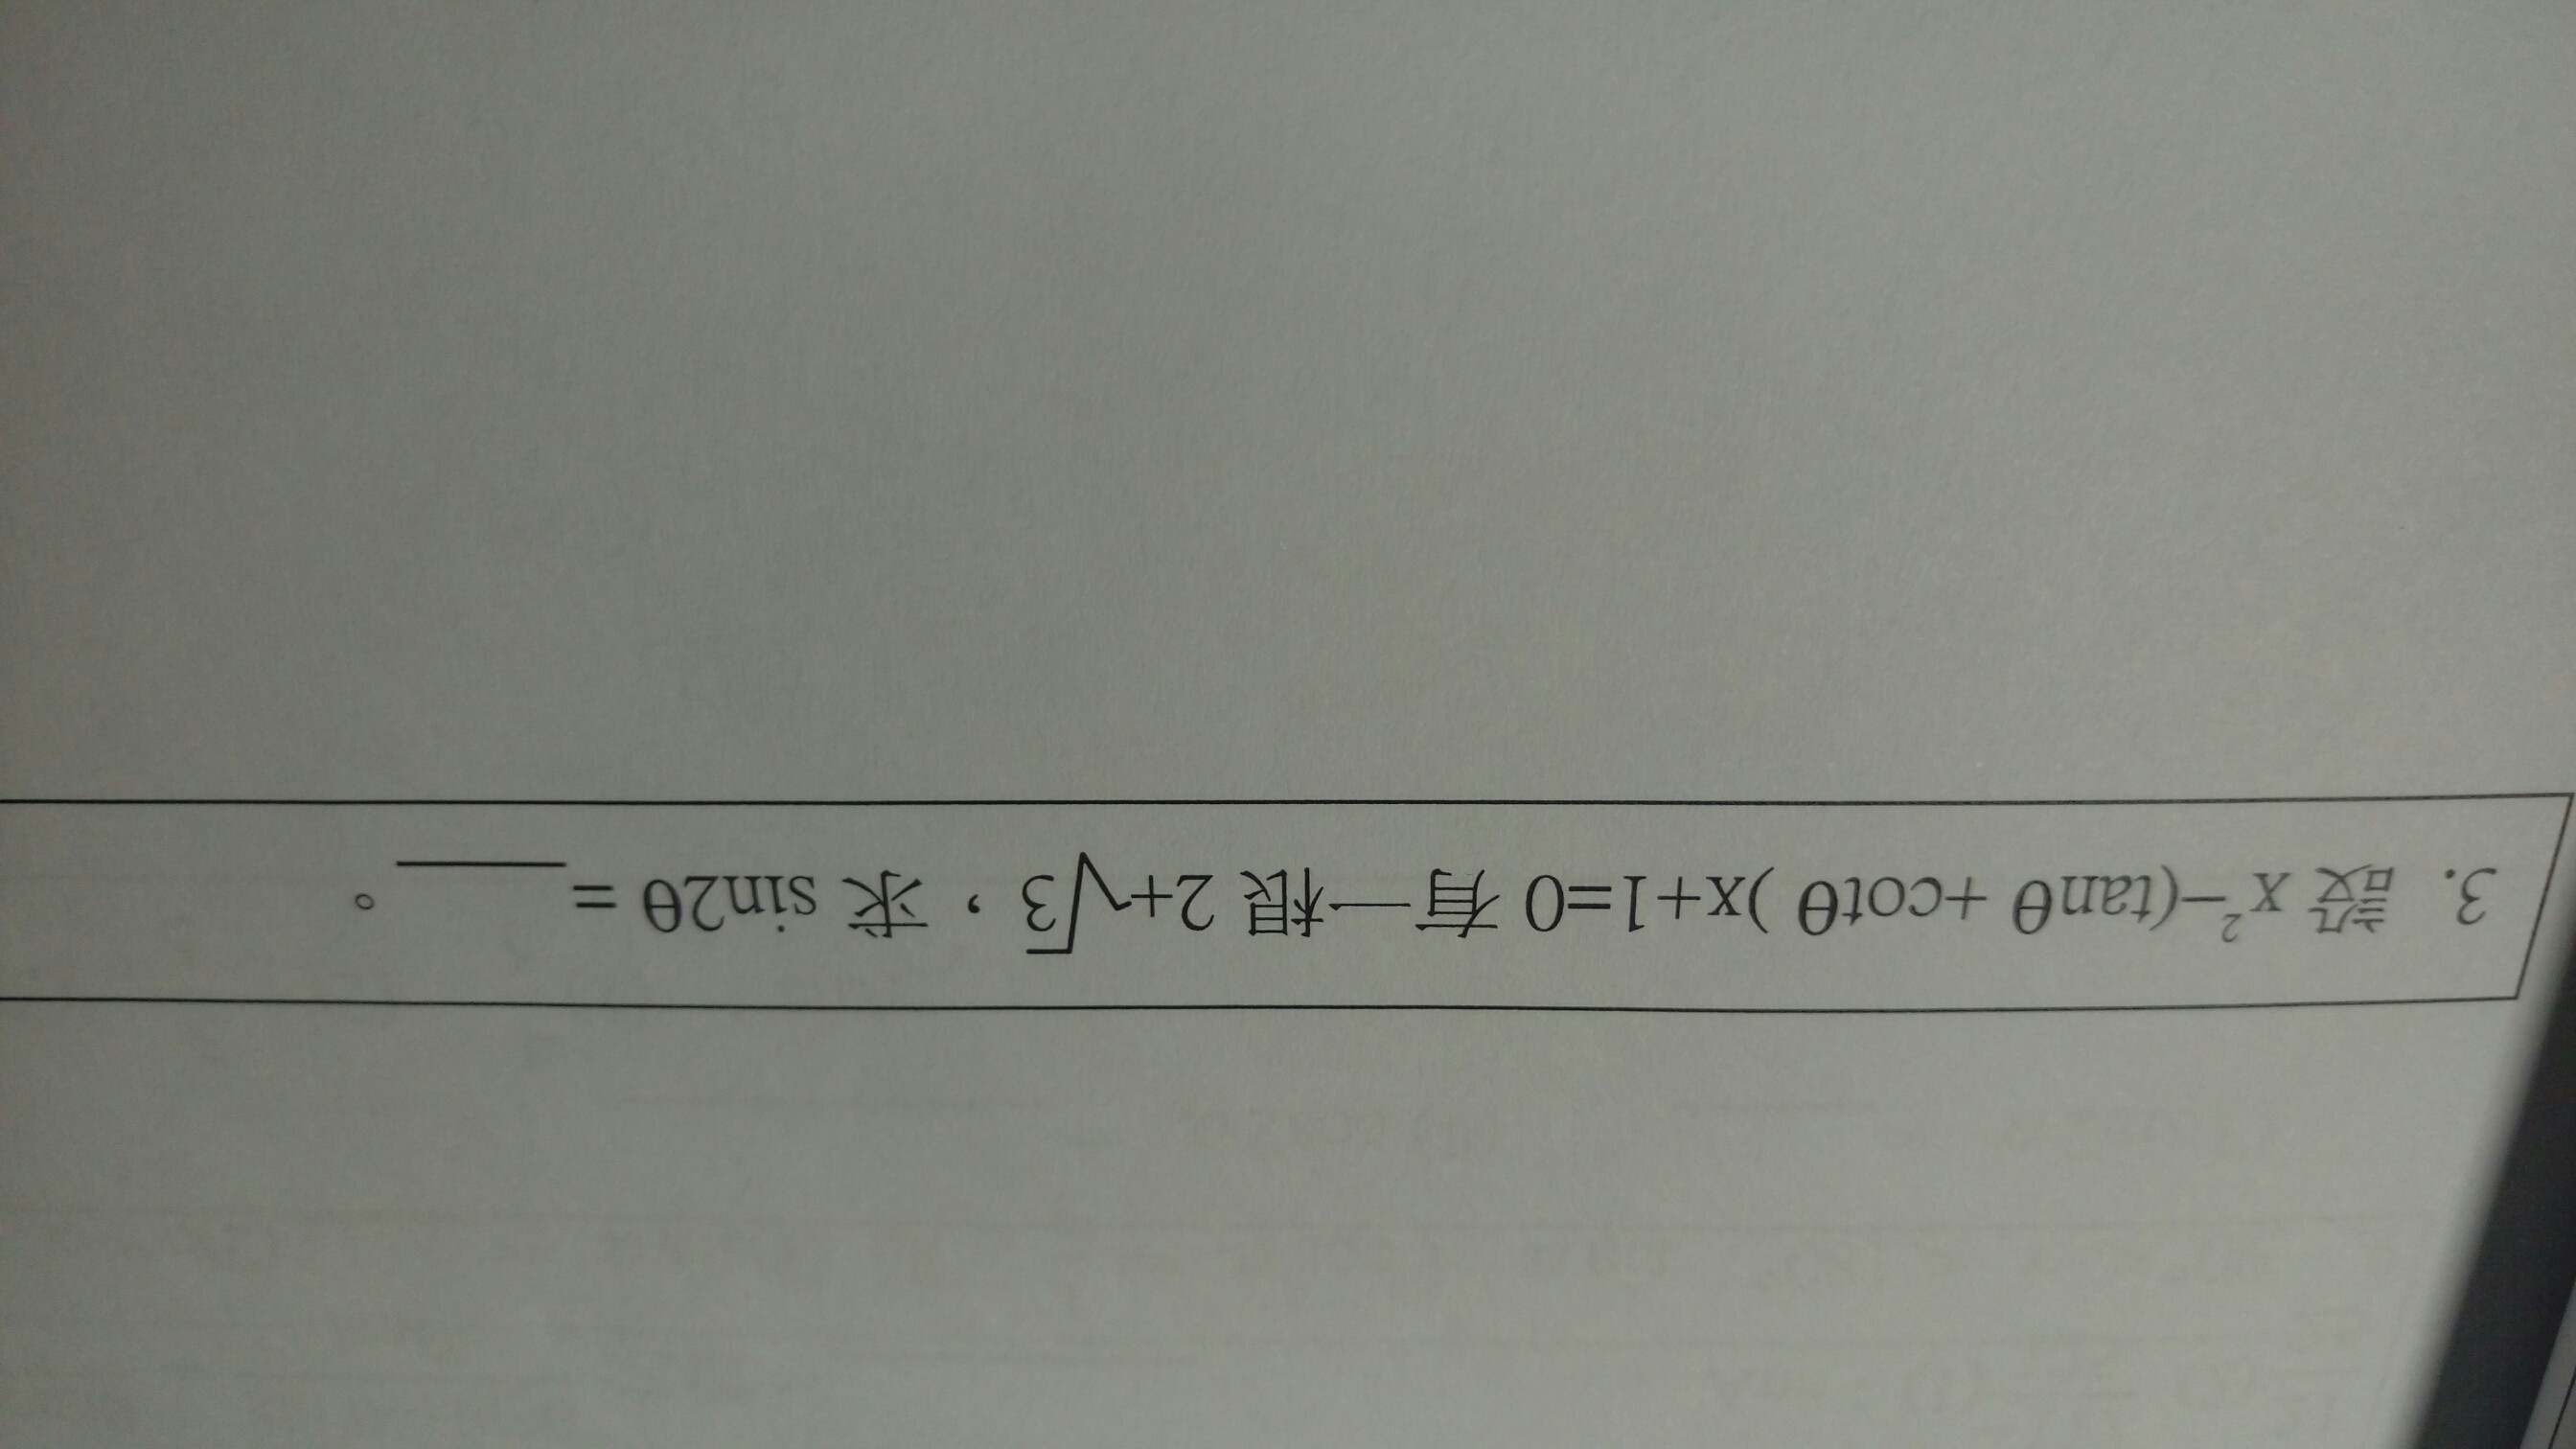 3. 設 x²−(tanθ+cotθ)x+1=0 有一根 2+√3，求 sin2θ = ____。